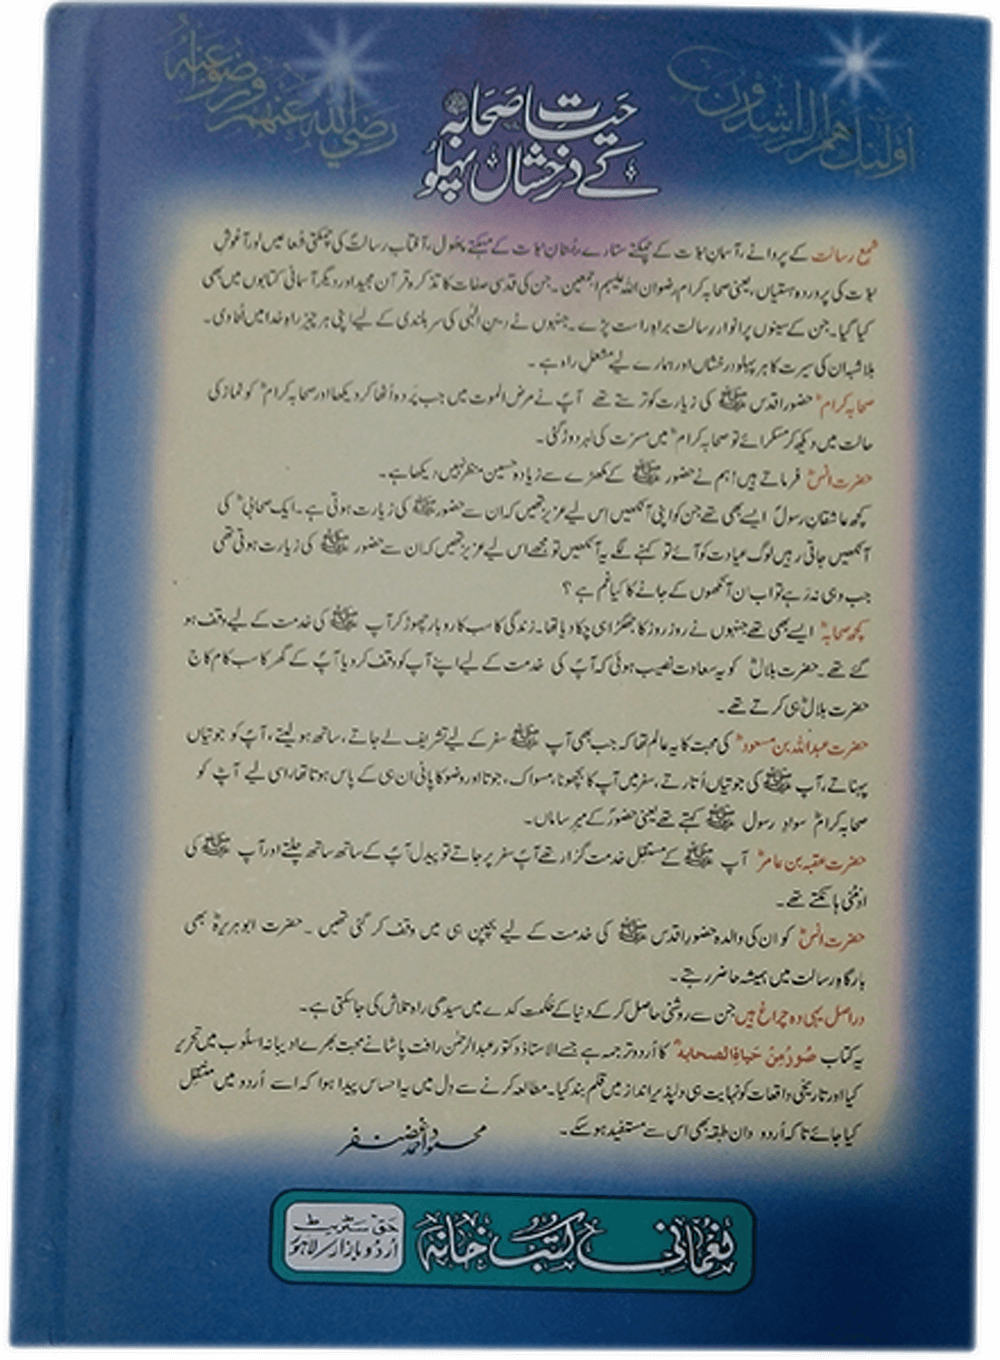 اولئك هم الراشدون
رضي الله عنهم ورضوعنه
حیاتِ صحابہؓ
کے درخشاں پہلو
شمع رسالت کے پروانے، آسمان نبوّت کے چمکتے ستارے، بُستانِ نبوّت کے مہکتے پھول، آفتابِ رسالت کی چمکتی شعاعیں اور آغوشِ
نبوّت کی پروردہ ہستیاں، یعنی صحابہ کرام رضوان اللہ علیہم اجمعین۔ جن کی قدسی صفات کا تذکرہ قرآن مجید اور دیگر آسمانی کتابوں میں بھی
کیا گیا۔ جن کے سینوں پر انوارِ رسالت براہِ راست پڑے۔ جنہوں نے دینِ الٰہی کی سربلندی کے لیے اپنی ہر چیز راہِ خدا میں لُٹا دی۔
بلاشبہ ان کی سیرت کا ہر پہلو درخشاں اور ہمارے لیے مشعلِ راہ ہے۔
صحابہ کرامؓ حضورِ اقدس ﷺ کی زیارت کو ترستے تھے آپؐ نے مرض الموت میں جب پردہ اُٹھا کر دیکھا اور صحابہ کرامؓ کو نماز کی
حالت میں دیکھ کر مسکرائے تو صحابہ کرامؓ میں مسرّت کی لہر دوڑ گئی۔
حضرت انسؓ فرماتے ہیں! ہم نے حضور ﷺ کے مکھڑے سے زیادہ حسین منظر نہیں دیکھا ہے۔
کچھ عاشقانِ رسولؐ ایسے بھی تھے جن کو اپنی آنکھیں اِس لیے عزیز تھیں کہ ان سے حضور ﷺ کی زیارت ہوتی ہے۔ ایک صحابیؓ کی
آنکھیں جاتی رہیں لوگ عیادت کو آئے تو کہنے لگے یہ آنکھیں تو مجھے اس لیے عزیز تھیں کہ ان سے حضور ﷺ کی زیارت ہوتی تھی
جب وہی نہ رہے تو اب ان آنکھوں کے جانے کا کیا غم ہے؟
کچھ صحابہؓ ایسے بھی تھے جنہوں نے روز روز کا جھگڑا ہی چکا دیا تھا۔ زندگی کا سب کاروبار چھوڑ کر آپ ﷺ کی خدمت کے لیے وقف ہو
گئے تھے۔ حضرت بلالؓ کو یہ سعادت نصیب ہوئی کہ آپؐ کی خدمت کے لیے اپنے آپ کو وقف کر دیا آپؐ کے گھر کا سب کام کاج
حضرت بلالؓ ہی کرتے تھے۔
حضرت عبداللہ بن مسعودؓ کی محبت کا یہ عالم تھا کہ جب بھی آپ ﷺ سفر کے لیے تشریف لے جاتے، ساتھ ہو لیتے، آپؐ کو جوتیاں
پہناتے، آپ ﷺ کی جوتیاں اُتارتے، سفر میں آپ کا بچھونا، مسواک، جوتا اور وضو کا پانی ان ہی کے پاس ہوتا تھا، اسی لیے آپؓ کو
صحابہ کرامؓ سوادِ رسول ﷺ کہتے تھے یعنی حضورؐ کے میرِ ساماں۔
حضرت عقبہ بن عامرؓ آپ ﷺ کے مستقل خدمت گزار تھے آپؐ سفر پر جاتے تو پیدل آپؐ کے ساتھ ساتھ چلتے اور آپ ﷺ کی
اونٹنی ہانکتے تھے۔
حضرت انسؓ کو ان کی والدہ حضورِ اقدس ﷺ کی خدمت کے لیے بچپن ہی میں وقف کر گئی تھیں۔ حضرت ابو ہریرہؓ بھی
بارگاہِ رسالت میں ہمیشہ حاضر رہتے۔
دراصل یہی وہ چراغ ہیں جن سے روشنی حاصل کر کے دنیا کے ظُلمت کدے میں سیدھی راہ تلاش کی جا سکتی ہے۔
یہ کتاب صُوَرٌ مِنْ حَیَاۃِ الصحابہؓ کا اُردو ترجمہ ہے جسے الاستاذ دکتور عبدالرحمٰن رافت پاشا نے محبت بھرے ادیبانہ اسلُوب میں تحریر
کیا اور تاریخی واقعات کو نہایت ہی دلپذیر انداز میں قلم بند کیا۔ مطالعہ کرنے سے دِل میں یہ احساس پیدا ہوا کہ اسے اُردو میں منتقل
کیا جائے تاکہ اُردو دان طبقہ بھی اس سے مستفید ہو سکے۔
محمود احمد غضنفر
نعمانی کتب خانہ
حق سٹریٹ
اردو بازار لاہور